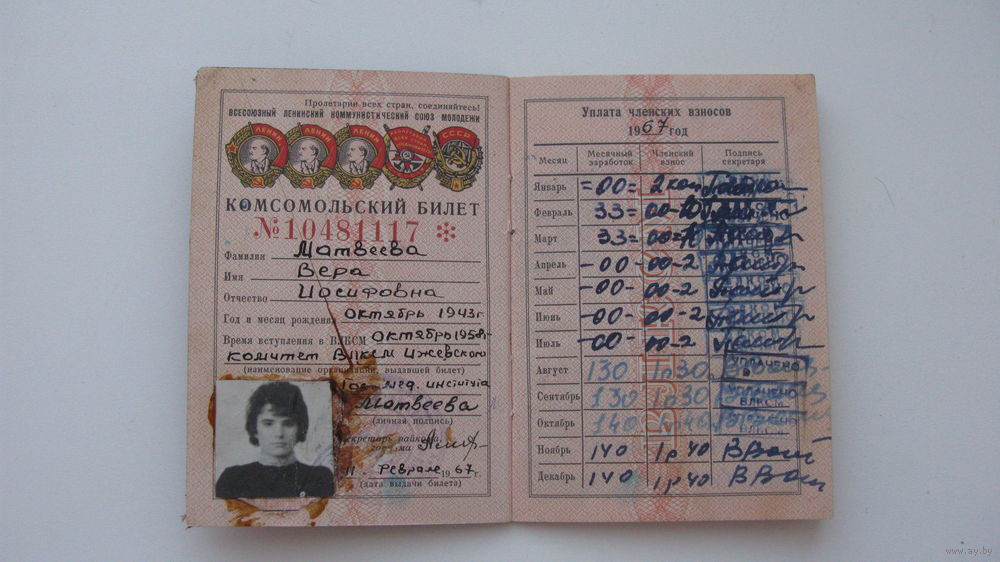 Пролетарии всех стран, соединяйтесь!
ВСЕСОЮЗНЫЙ ЛЕНИНСКИЙ КОММУНИСТИЧЕСКИЙ СОЮЗ МОЛОДЕЖИ
ЛЕНИН ЛЕНИН ЛЕНИН СССР
КОМСОМОЛЬСКИЙ БИЛЕТ
№10481117
Фамилия Матвеева
Имя Вера
Отчество Иосифовна
Год и месяц рождения октябрь 1943г.
Время вступления в ВЛКСМ октябрь 1958г.
комитет ВЛКСМ Ижевского
(наименование организации, выдавшей билет)
мед. института
Матвеева
(личная подпись)
Секретарь райкома,
горкома
11 февраля 1967г.
(дата выдачи билета)
Уплата членских взносов
1967 год
Месяц Месячный заработок Членский взнос Подпись секретаря
Январь =00= 2 коп
Февраль 33=00
Март 33=00
Апрель -00 -00-2
Май -00 -00-2
Июнь -00 -00-2
Июль -00 -00-2
Август 130 1р30 УПЛАЧЕНО
Сентябрь 130 1р30 УПЛАЧЕНО ВЛКСМ
Октябрь 140 1р40 УПЛАЧЕНО ВЛКСМ
Ноябрь 140 1р40
Декабрь 140 1р40
www.ay.by